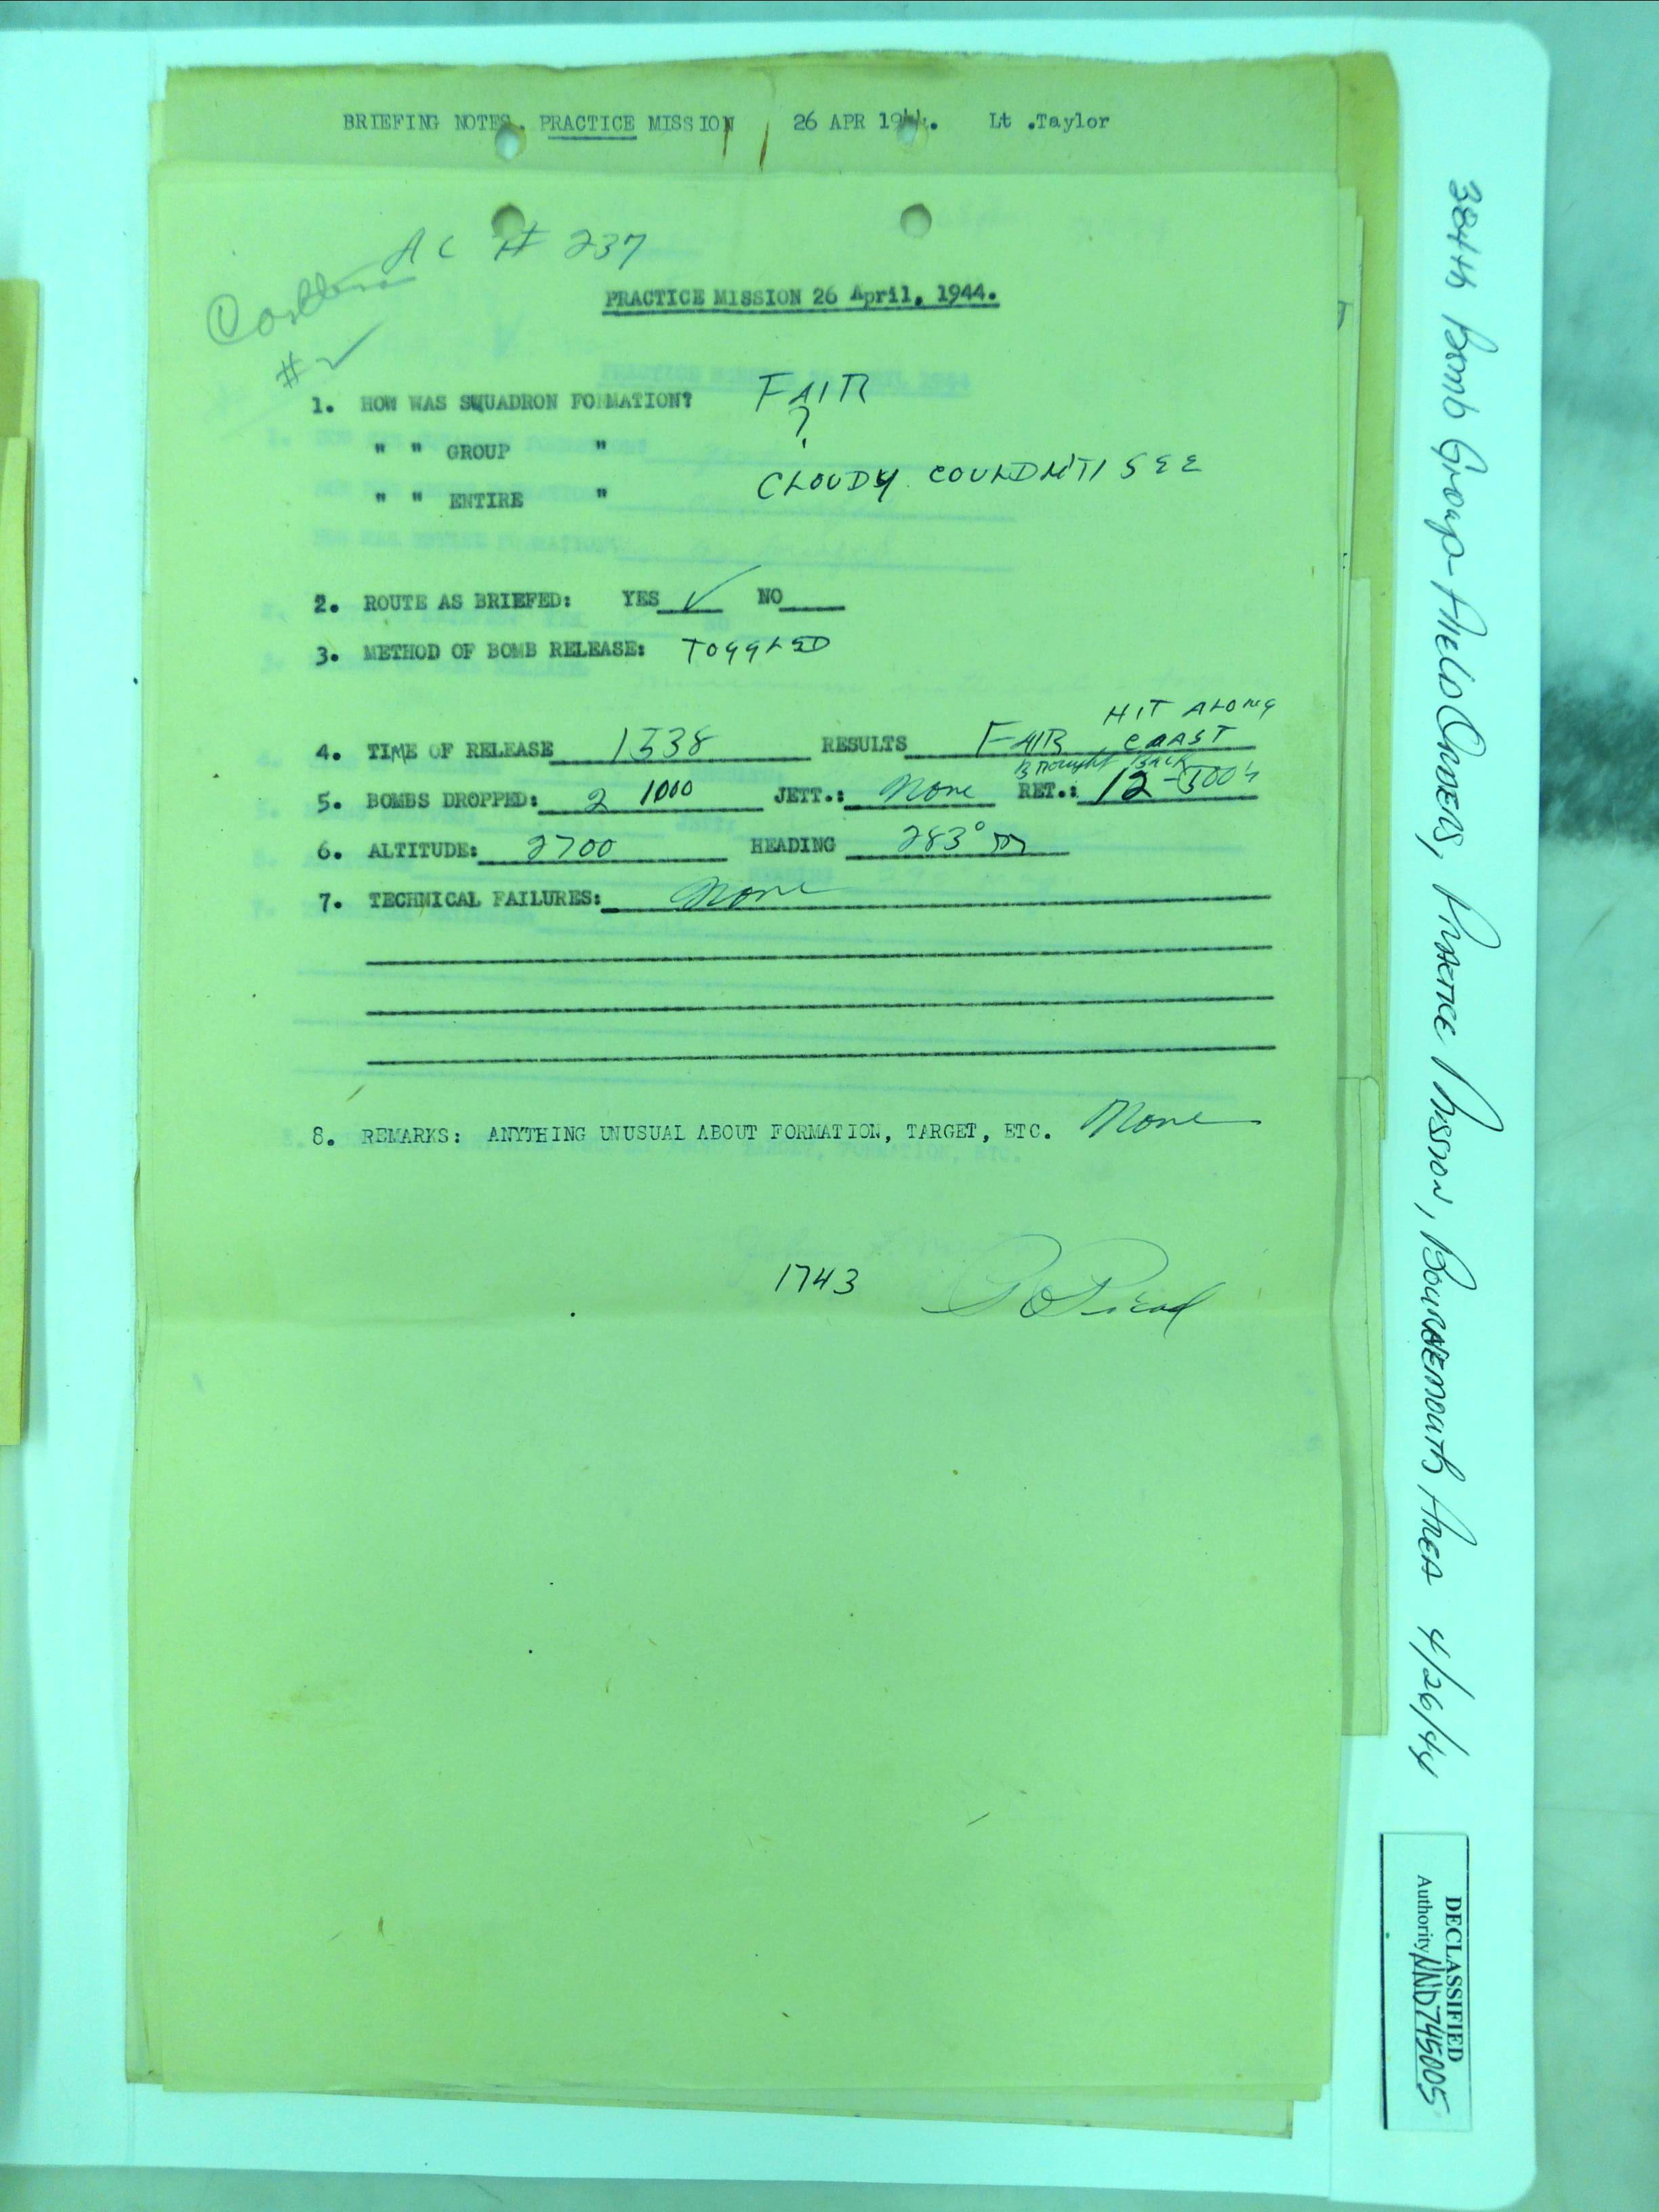 BRIEFING NOTES. PRACTICE MISSION 26 APR 1944. Lt .Taylor
AC # 237
# 2
PRACTICE MISSION 26 April, 1944.
1. HOW WAS SQUADRON FORMATION? FAIR
" " GROUP " ?
" " ENTIRE " CLOUDY COULDN'T SEE
2. ROUTE AS BRIEFED: YES ✓ NO
3. METHOD OF BOMB RELEASE: TOGGLED
HIT ALONG
4. TIME OF RELEASE 1538 RESULTS FAIR, COAST
Brought Back
5. BOMBS DROPPED: 2 1000 JETT.: None RET.: 12-500's
6. ALTITUDE: 2700 HEADING 283° m
7. TECHNICAL FAILURES: None
8. REMARKS: ANYTHING UNUSUAL ABOUT FORMATION, TARGET, ETC. None
1743
384th Bomb Group - Field Orders, Practice Mission, Bournemouth Area 4/26/44
DECLASSIFIED
Authority NND745005